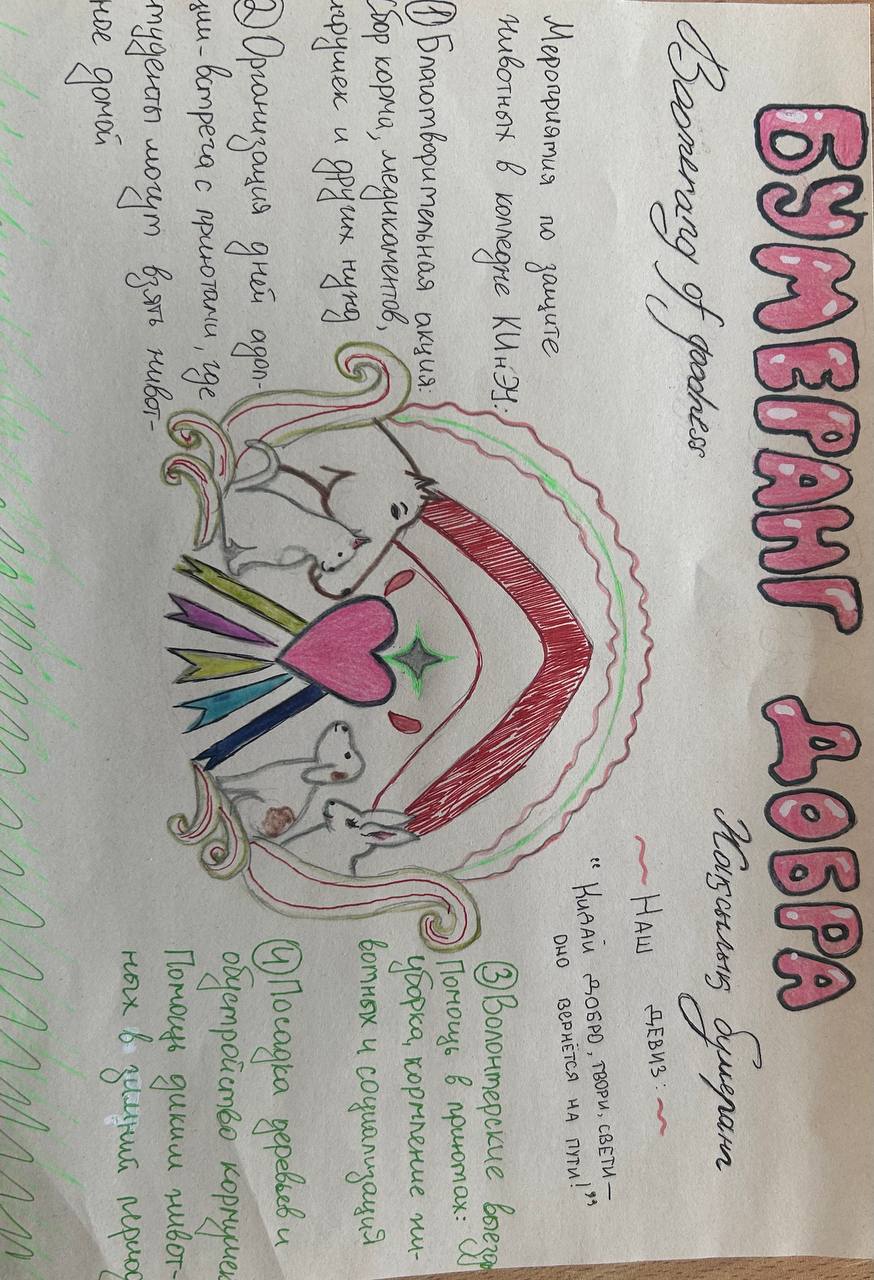 БУМЕРАНГ ДОБРА
Boomerang of goodness
Жақсылық бумеранг
~ Наш девиз: ~
"Кидай добро, твори, свети —
оно вернётся на пути!"
Мероприятия по защите
животных в колледже КИнЭУ:
① Благотворительная акция:
Сбор корма, медикаментов,
игрушек и других нужд
② Организация дней адоп-
ции-встреча с приютами, где
студенты могут взять живот-
ное домой
③ Волонтерские
Помощь в приютах:
уборка, кормление жи-
вотных и социализация
④ Посадка деревьев и
обустройство кормушек
Помощь диким живот-
ных в зимний период